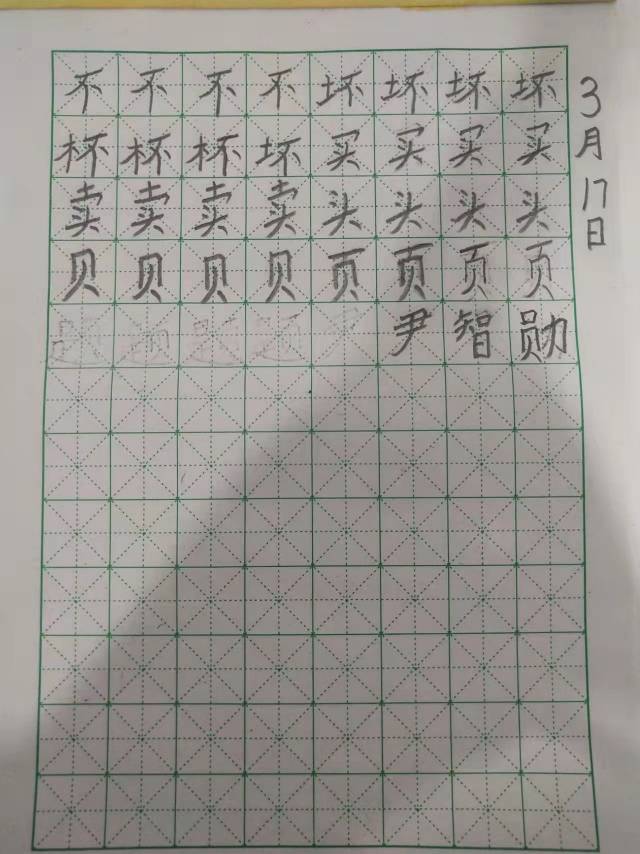 不不不不坏坏坏坏
杯杯杯坏买买买买
卖卖卖卖头头头头
贝贝贝贝页页页页
尹智勋
3月17日